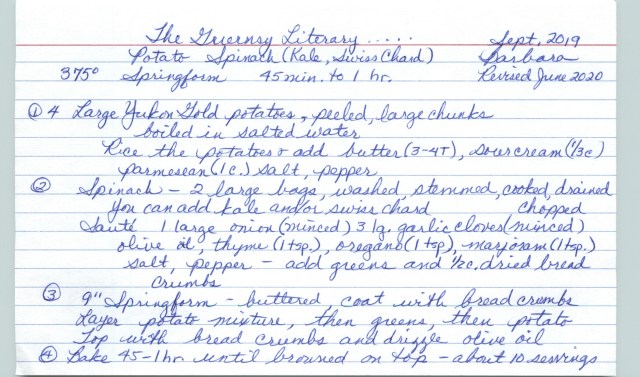 The Guernsy Literary..... Sept, 2019
Potato Spinach (Kale, Swiss Chard) Barbara
375° Springform 45 min. to 1 hr. Revised June 2020
① 4 Large Yukon Gold potatoes, peeled, large chunks
boiled in salted water
Rice the potatoes & add butter (3-4T), sour cream (1/3c)
parmesean (1c.) salt, pepper
② Spinach - 2 large bags, washed, stemmed, cooked, drained
You can add kale and/or swiss chard chopped
Sauté 1 large onion (minced) 3 lg. garlic cloves (minced)
olive oil, thyme (1 tsp.), oregano (1 tsp), marjoram (1 tsp.)
salt, pepper - add greens and 1/2c. dried bread
crumbs
③ 9" Springform - buttered, coat with bread crumbs
Layer potato mixture, then greens, then potato
Top with bread crumbs and drizzle olive oil
④ Bake 45-1 hr. until browned on top - about 10 servings